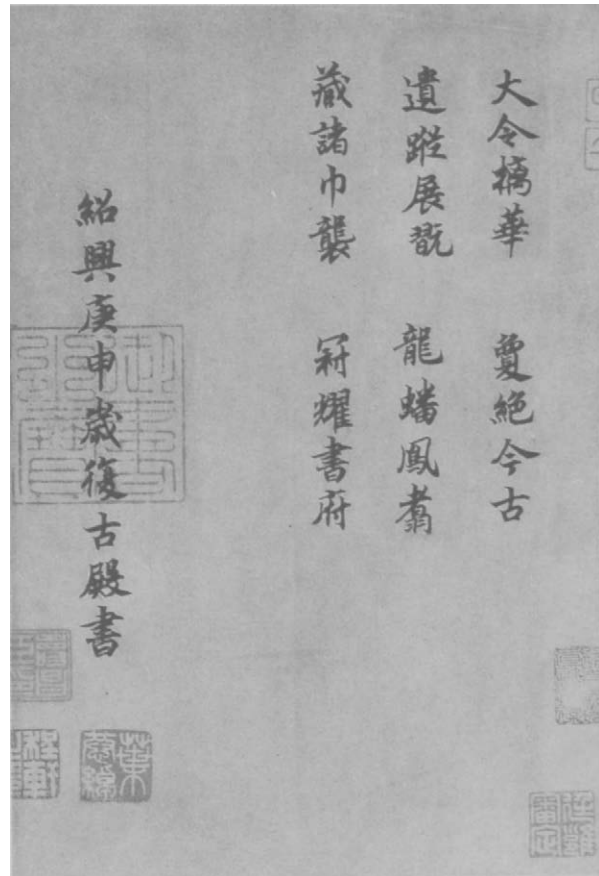 大令摛華 敻絕今古
遺蹤展翫 龍蟠鳳翥
藏諸巾襲 冠耀書府
紹興庚申歲復古殿書
葉恭綽